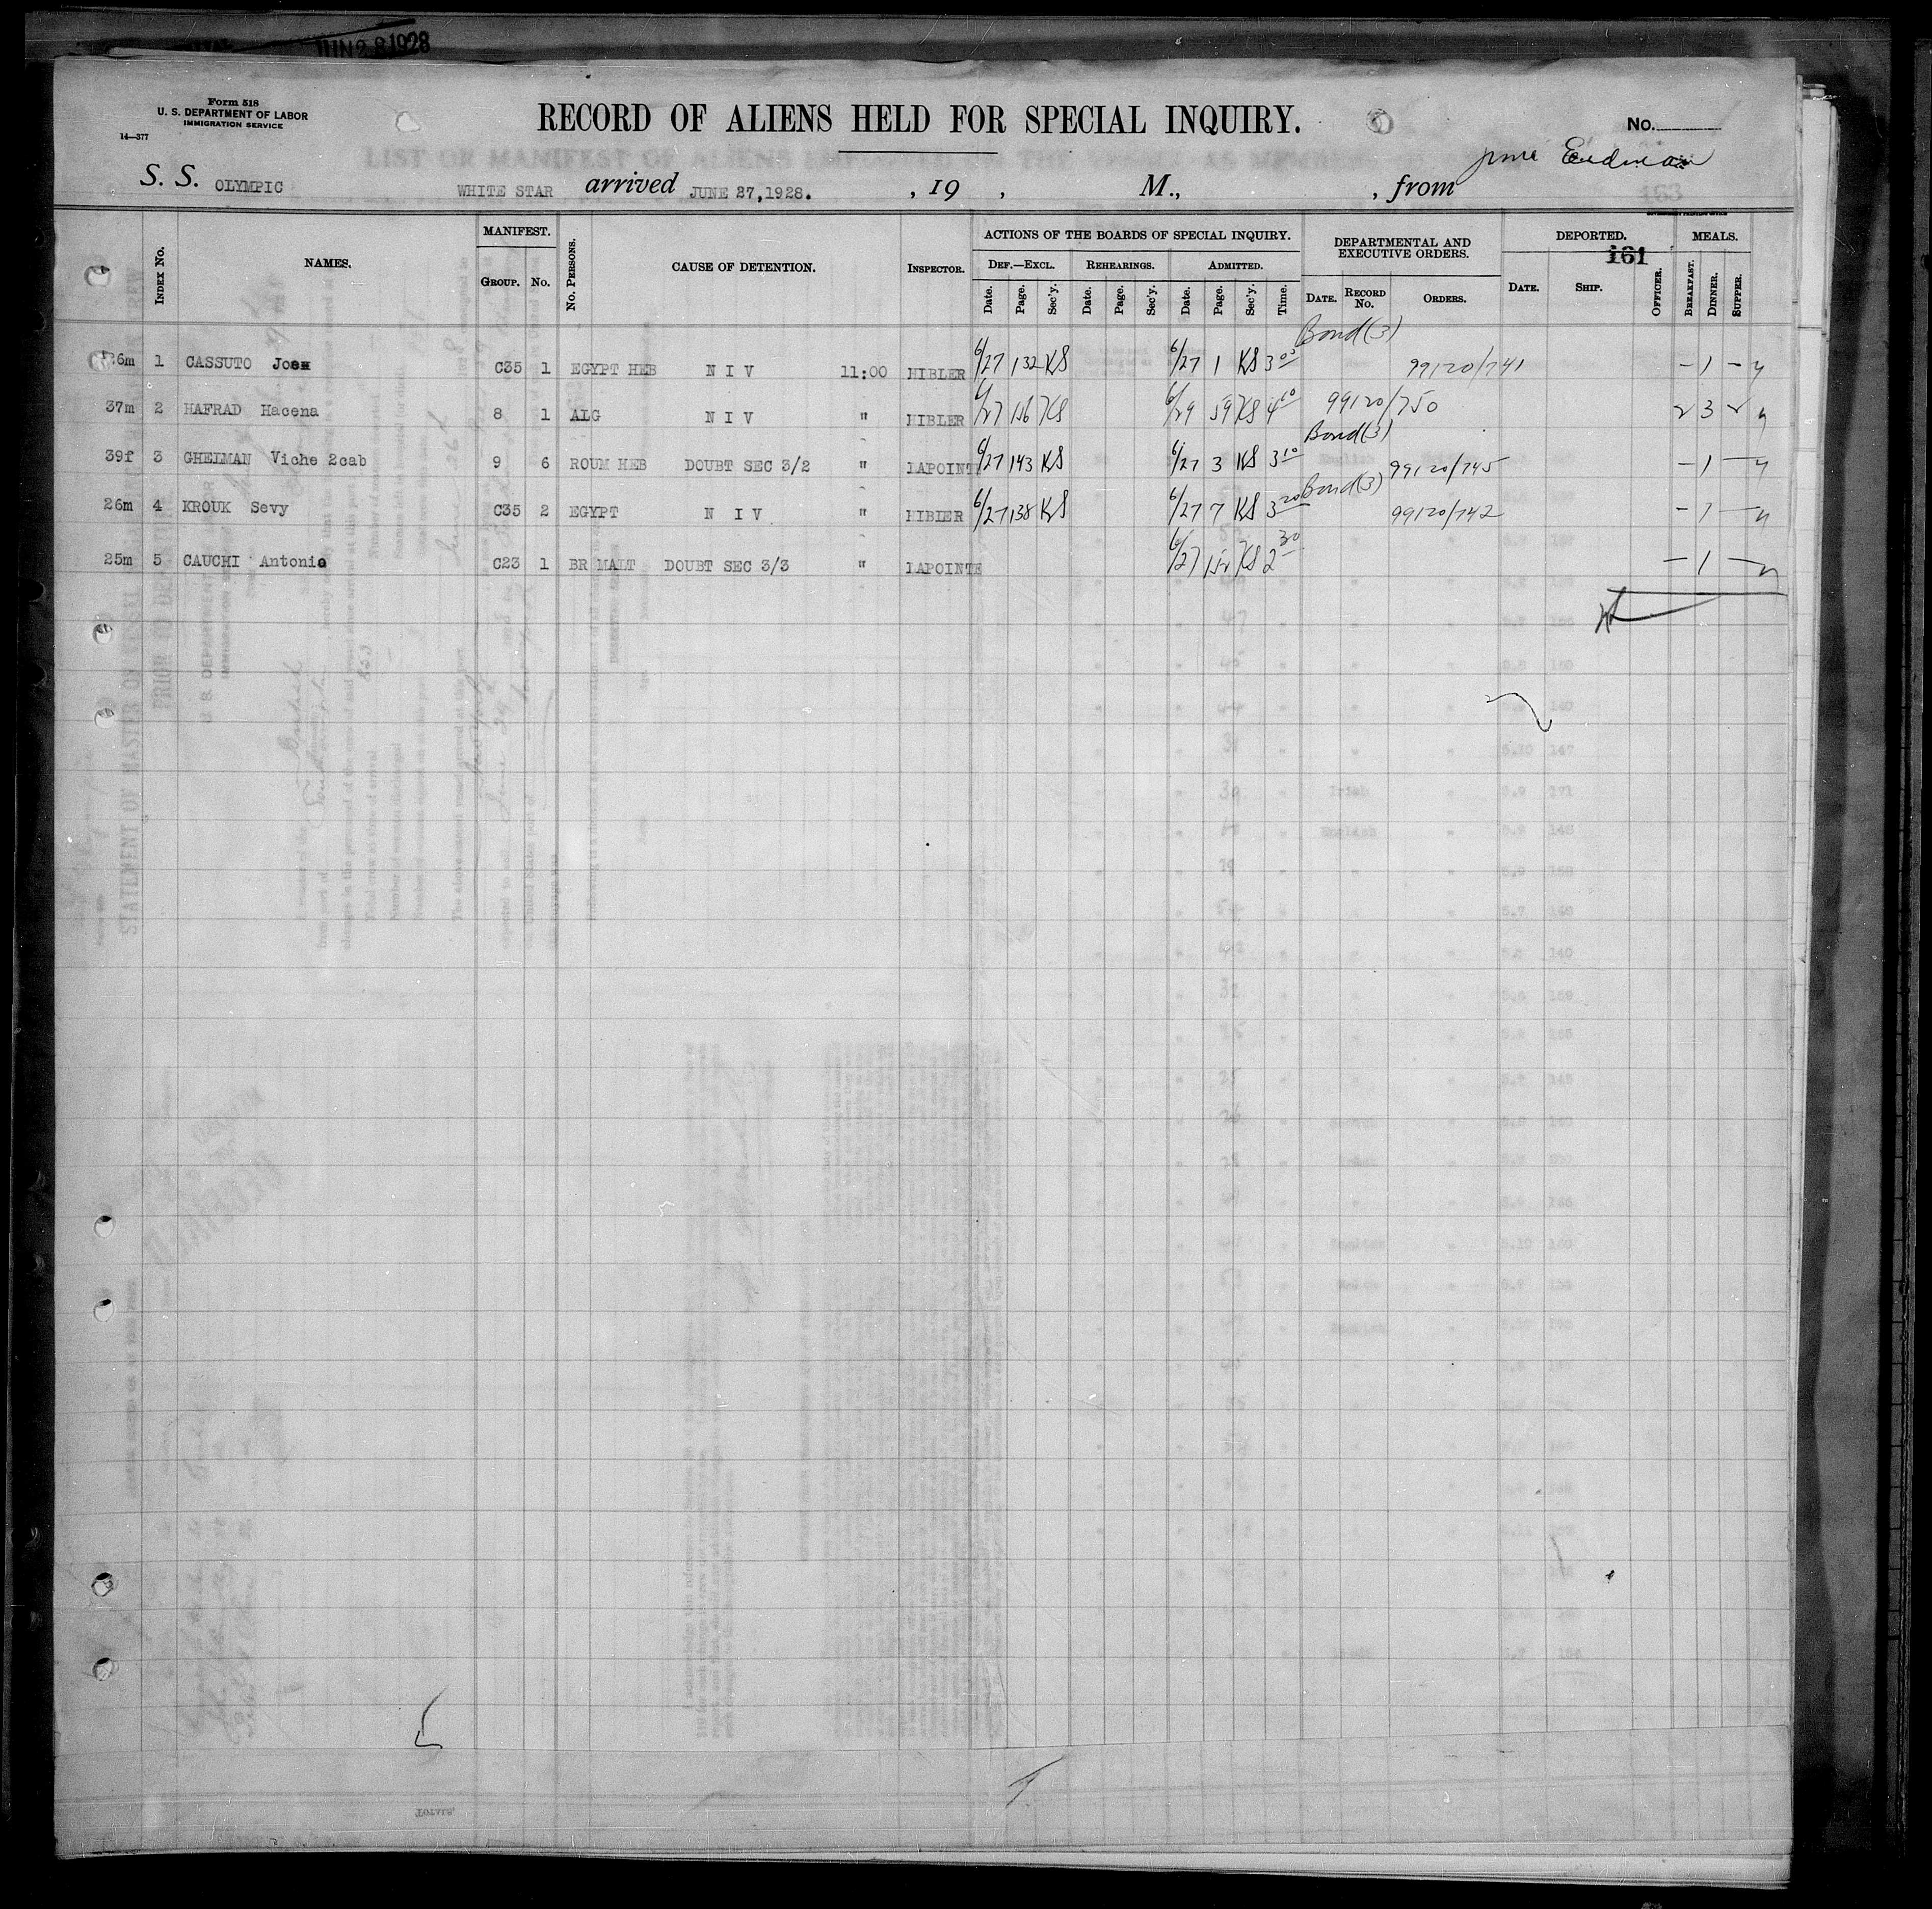 JUN 28 1928
Form 518
U. S. DEPARTMENT OF LABOR
IMMIGRATION SERVICE
14—377
RECORD OF ALIENS HELD FOR SPECIAL INQUIRY.
No.
S. S. OLYMPIC WHITE STAR arrived JUNE 27, 1928. , 19 , M., , from
161
INDEX No. NAMES. MANIFEST. GROUP. No. No. PERSONS. CAUSE OF DETENTION. INSPECTOR. ACTIONS OF THE BOARDS OF SPECIAL INQUIRY. DEPARTMENTAL AND EXECUTIVE ORDERS. DEPORTED. MEALS.
DEF.—EXCL. REHEARINGS. ADMITTED.
Date. Page. Sec'y. Date. Page. Sec'y. Date. Page. Sec'y. Time. DATE. RECORD No. ORDERS. DATE. SHIP. OFFICER. BREAKFAST. DINNER. SUPPER.
Bond (3)
26m 1 CASSUTO C35 1 EGYPT HEB N I V 11:00 HIBLER 6/27 132 KS 6/27 1 KS 3 00 99120/741 – 1 –
37m 2 HAFRAD Hacena 8 1 ALG N I V " HIBLER 6/27 156 KS 6/29 59 KS 4 10 99120/750 2 3 2
Bond (3)
39f 3 GHELMAN Viche 2cab 9 6 ROUM HEB DOUBT SEC 3/2 " LAPOINTE 6/27 143 KS 6/27 3 KS 3 10 99120/745 – 1 –
Bond (3)
26m 4 KROUK Sevy C35 2 EGYPT N I V " HIBLER 6/27 138 KS 6/27 7 KS 3 20 99120/742 – 1 –
25m 5 CAUCHI Antonio C23 1 BR MALT DOUBT SEC 3/3 " LAPOINTE 6/27 152 KS 2 30 – 1 –